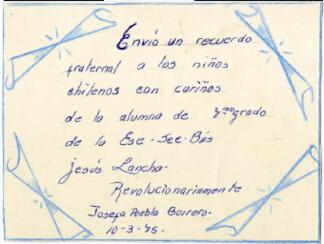 Envió un recuerdo
fraternal a los niños
chilenos con cariños
de la alumna de 7mo grado
de la Esc-Sec-Bás
jesús Lancha-
Revolucionariamente
Josefa Puebla Borrero.
10-3-75.